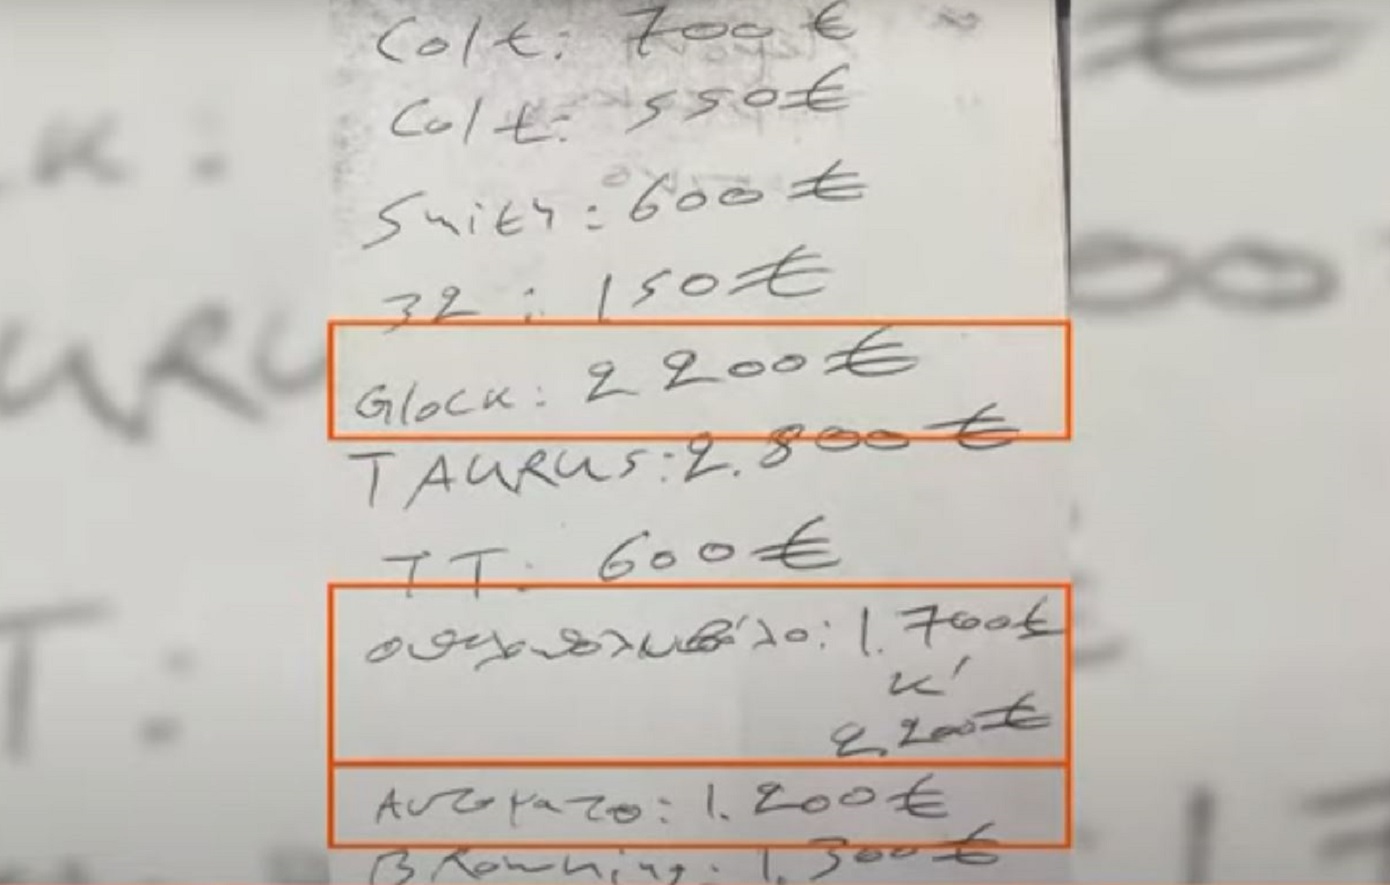 Colt: 700 €
Colt: 550€
Smith: 600 €
32 : 150€
Glock: 2200€
TAURUS: 2.800€
TT: 600€
1.700€
κ'
2.200€
Αυτοματο: 1.200€
Browning: 1.300€